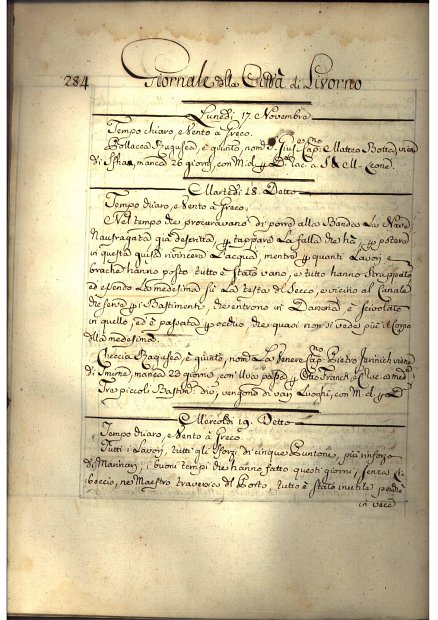 284 Giornale della Città di Livorno
Lunedi 17 Novembre
Tempo chiaro, e Vento à Greco.
Pollacca Ragusea, è giunto, nom. S. Matteo Botta, viene
di manca 26 giorni, con M. d.
Martedi 18. Detto
Tempo chiaro, e Vento à Greco,
Nel tempo che procuravano di porre alla Banda La Nave
Naufragata già descritta tappare La falla che hà potersi
in questa guisa rivincere L'acqua, mentre quanti Lavori e
brache hanno posto tutto è stato vano, e tutto hanno strappato
ed essendo La medesima sù La testa del Secco, e vicino al Canale
che serve i Bastimenti che entrono in Darsena è scivolato
in quello, ed è passata occhio, che quasi non si vede più il Corpo
della medesima.
Checcia Ragusea, è giunto, nom. La Venere Cap. Pietro viene
di Smirne, manca 23 giorni, con
Tre piccoli Bastim. vengono di varj Luoghi, con M. d.
Mercoldi 19. Detto
Tempo chiaro, e Vento à Greco.
Tutti i Lavori, tutti gli sforzi di cinque Puntoni, più rinforzo
di Marinari, i buoni tempi che hanno fatto questi giorni, senza
ne Maestro traversia del Porto, tutto è stato inutile
in vece